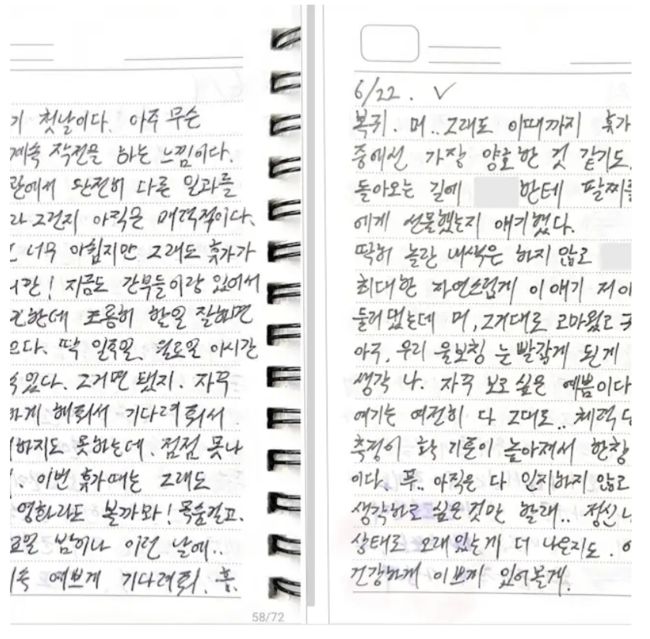 기 첫날이다. 아주 무슨
계속 작전을 하는 느낌이다.
란에서 완전히 다른 일과를
라 그런지 아직은 매력적이다.
너무 아쉽지만 그래도 휴가가
니깐! 지금도 간부들이랑 있어서
건한데 조용히 할일 잘하면
으다. 딱 일요일, 월요일 아시간
있다. 그거면 됐지. 자꾸
하게 해줘서 기다려줘서
하지도 못하는데. 점점 못나
. 이번 휴가때는 그래도
영화라도 볼까봐! 목숨걸고.
요일 밤이나 이런 날에..
속 예쁘게 기다려줘. 흥.
58/72
6/22. ✓
복귀. 머.. 그래도 이때까지 휴가
중에선 가장 양호한 것 같기도.
돌아오는 길에 한테 팔찌를
에게 선물했는지 얘기했다.
딱히 놀란 내색은 하지 않고
최대한 자연스럽게 이 얘기 저이
들려줬는데 머, 그거대로 고마웠고
아주, 우리 울보칭 눈 빨갛게 된게
생각 나. 자꾸 보고 싶은 예쁨이다
여기는 여전히 다 그대로.. 체력 단
측정이 확 기준이 높아져서 한창
이다. 푸. 아직은 다 인지하지 않고
생각하고 싶은것만 할래.. 정신 나
상태로 오래있는게 더 나은지도. 이
건강하게 이쁘게 있어볼게.